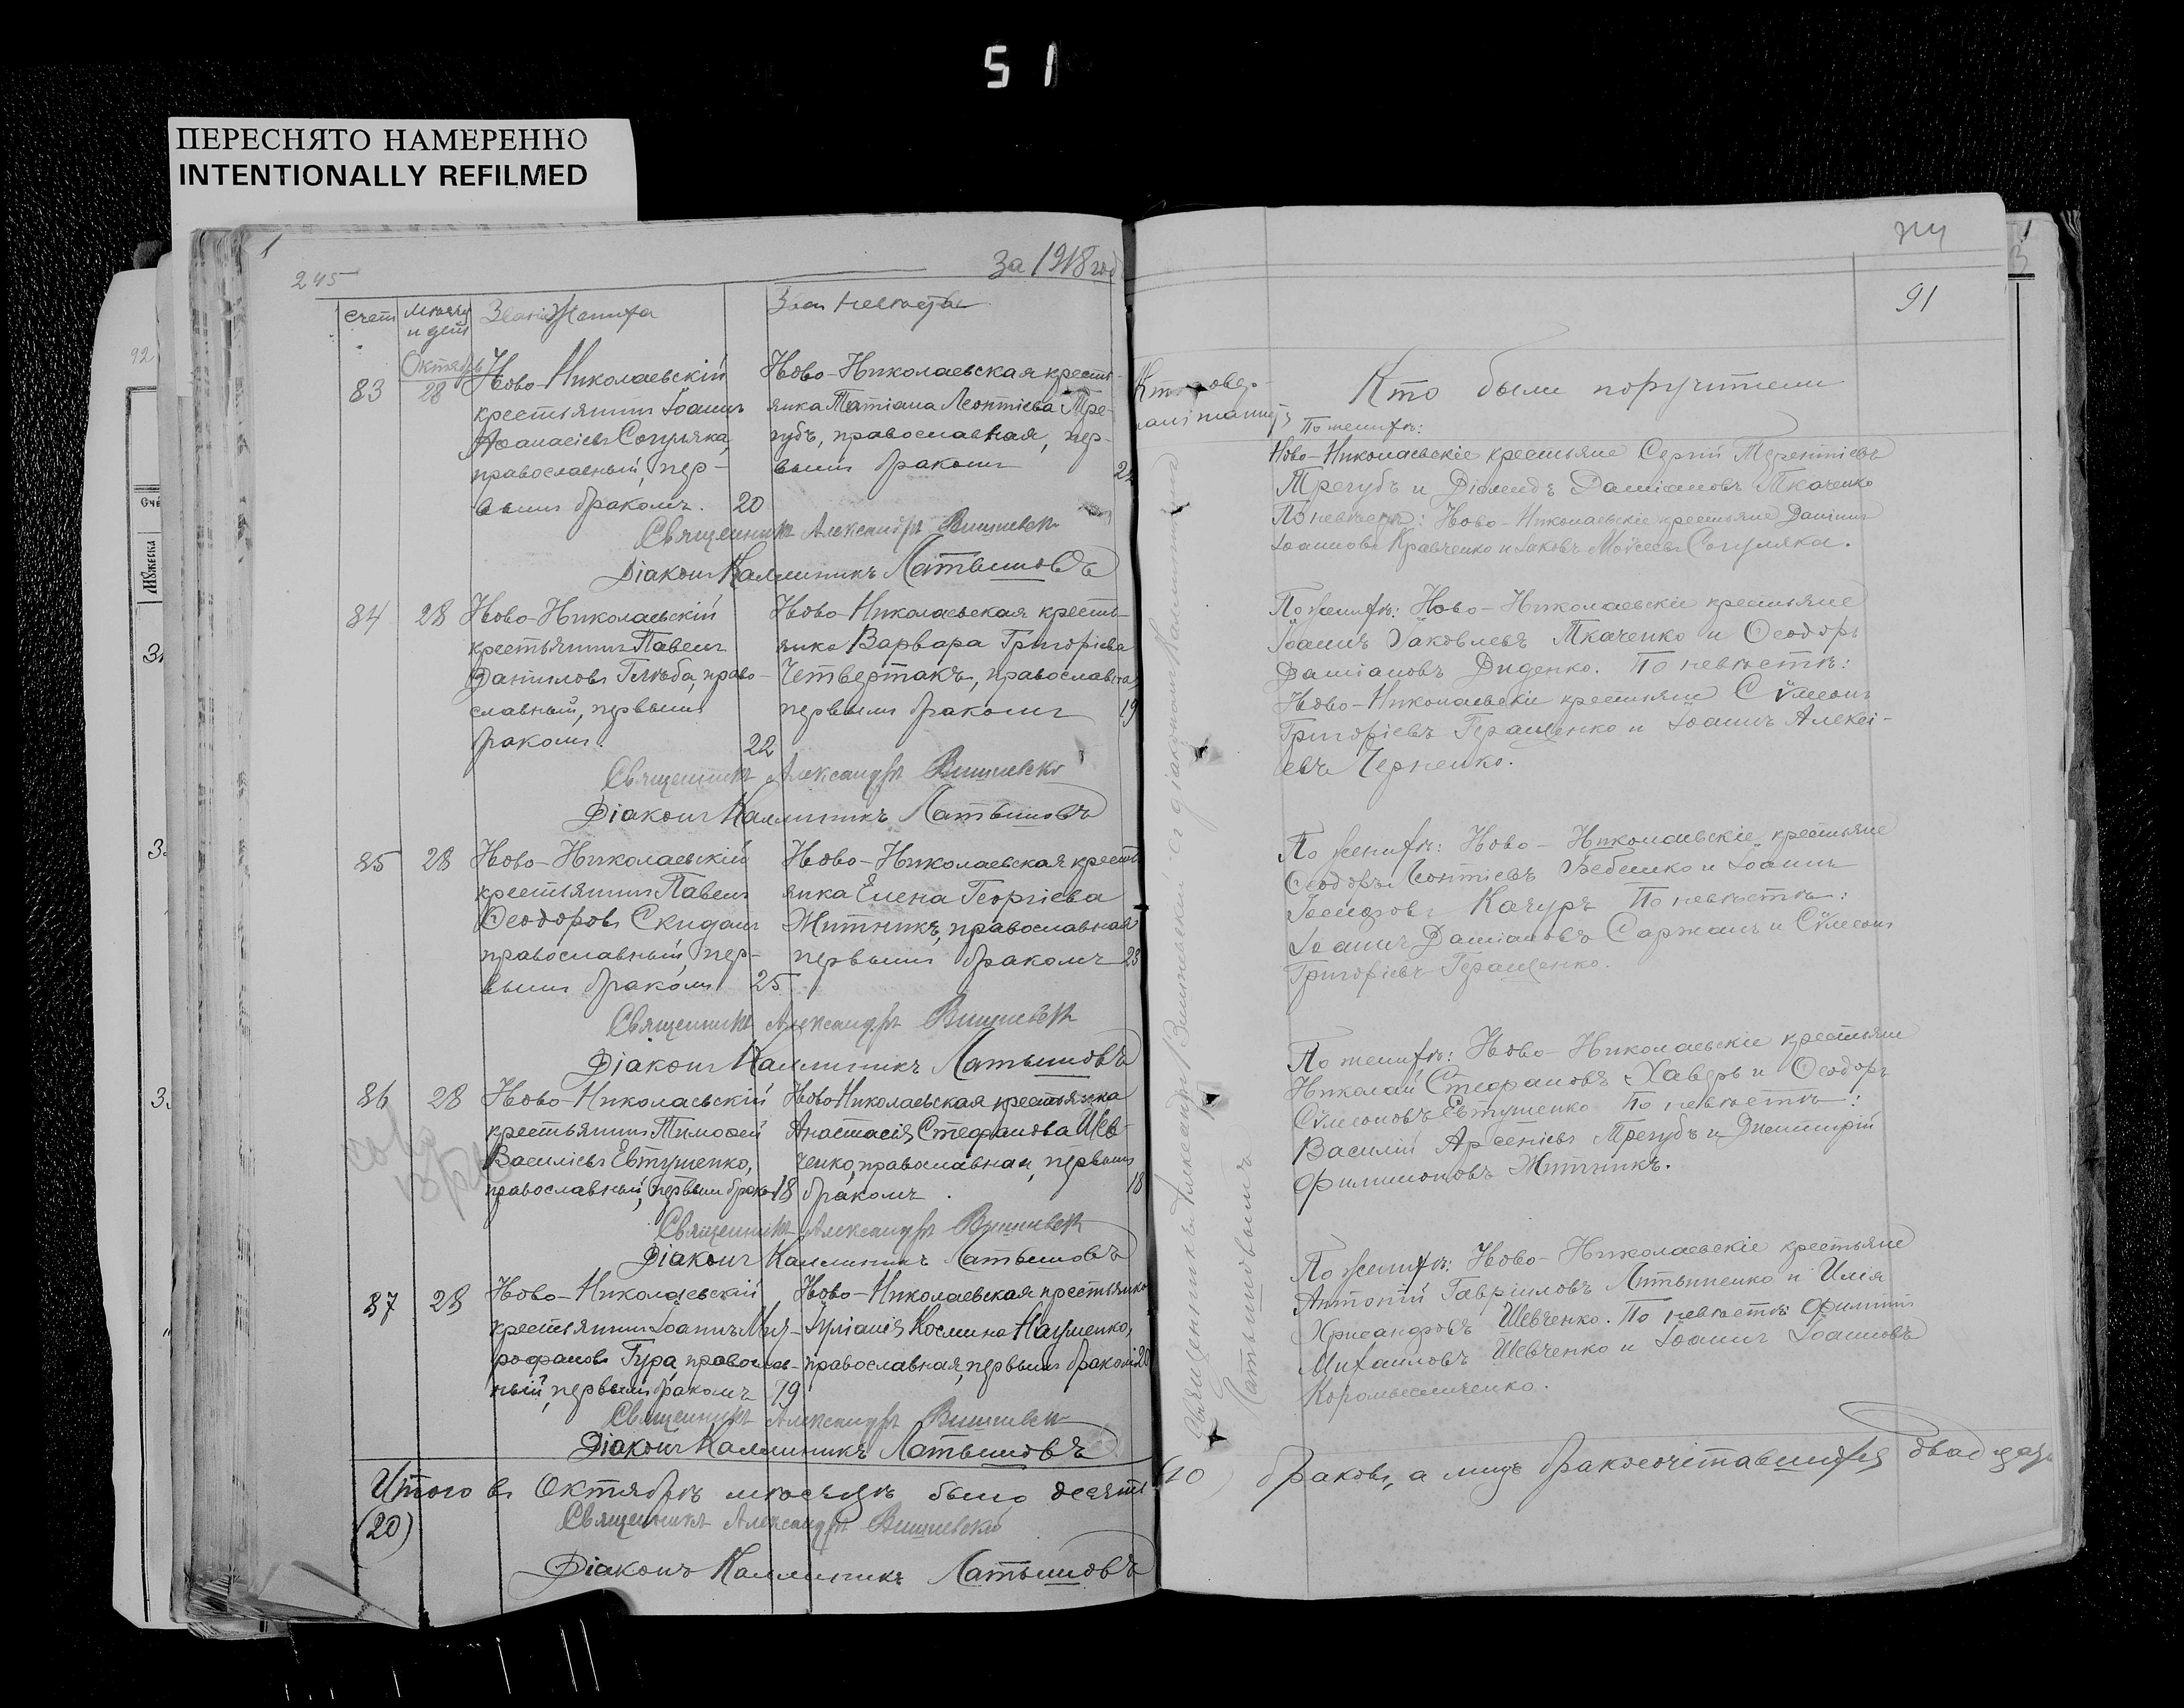 51
ПЕРЕСНЯТО НАМЕРЕННО
INTENTIONALLY REFILMED
245
За 1918 год
счетъ
Званіе Жениха
Зван невѣсты
Октябрь
83
28
Ново-Николаевскій
крестьянинъ Іоаннъ
Аѳанасіевъ Согуляка,
православный, пер-
вымъ бракомъ. 20
Ново-Николаевская кресть-
янка Татіана Леонтіева Тре-
губъ, православная, пер-
вымъ бракомъ
Священникъ Александръ Вишневск
Діаконъ Каллиникъ Латышовъ
84
28
Ново-Николаевскій
крестьянинъ Павелъ
Даниловъ Глѣба, право-
славный, первымъ
бракомъ. 22
Ново-Николаевская кресть-
янка Варвара Григоріева
Четвертакъ, православна
первымъ бракомъ 19
Священникъ Александръ Вишневскі
Діаконъ Каллиникъ Латышовъ
85
28
Ново-Николаевскій
крестьянинъ Павелъ
Ѳеодоровъ Скиданъ
православный, пер-
вымъ бракомъ 25
Ново-Николаевская кресть
янка Елена Георгіева
Житникъ, православная
первымъ бракомъ 23
Священникъ Александръ Вишневск
Діаконъ Каллиникъ Латышовъ
86
28
Ново-Николаевскій
крестьянинъ Тимоѳей
Василіевъ Евтушенко,
православный, первым брако 18
Ново Николаевская крестьянка
Анастасія Стефанова Шев-
ченко, православная, первымъ
бракомъ. 18
Священникъ Александръ Вишневск
Діаконъ Каллиникъ Латышовъ
87
28
Ново-Николаевскій
крестьянинъ Іоаннъ Мит-
рофановъ Гура, православ-
ный, первымъ бракомъ 19
Ново-Николаевская крестьянка
Іуліанія Космина Науменко,
православная, первымъ бракомъ 20
Священникъ Александръ Вишневск
Діаконъ Каллиникъ Латышовъ
Итого въ Октябрѣ мѣсяцѣ было десять
(20)
Священникъ Александръ Вишневскій
Діаконъ Каллиникъ Латышовъ
91
Кто совер-
Кто были поручители
По женихѣ:
Ново-Николаевскіе крестьяне Сергій Терентіевъ
Трегубъ и Діомидъ Даміановъ Ткаченко
По невѣстѣ: Ново-Николаевскіе крестьяне Даніилъ
Іоанновъ Кравченко и Іаковъ Моѵсеевъ Согуляка.
По женихѣ: Ново-Николаевскіе крестьяне
Іоаннъ Іаковлевъ Ткаченко и Ѳеодоръ
Даміановъ Диденко. По невѣстѣ:
Ново-Николаевскіе крестьяне Сѵмеонъ
Григоріевъ Геращенко и Іоаннъ Алексі-
евъ Черненко.
По женихѣ: Ново-Николаевскіе крестьяне
Ѳеодоръ Леонтіевъ Бебешко и Іоаннъ
Качуръ По невѣстѣ:
Іоаннъ Даміановъ Саржанъ и Сѵмеонъ
Григоріевъ Геращенко.
По женихѣ: Ново-Николаевскіе крестьяне
Николай Стефановъ Хаверъ и Ѳеодоръ
Сѵмеоновъ Евтушенко По невѣстѣ:
Василій Арсеніевъ Трегубъ и Димитрій
Филимоновъ Житникъ.
По женихѣ: Ново-Николаевскіе крестьяне
Антоній Гавріиловъ Литвиненко и Илія
Хрисанфовъ Шевченко. По невѣстѣ Филиппъ
Михаиловъ Шевченко и Іоаннъ Іоанновъ
(10) браковъ, а лицъ бракосочетавшихся двадцать
Священникъ Александръ Вишневскій съ діакономъ Каллиникомъ
Латышовымъ